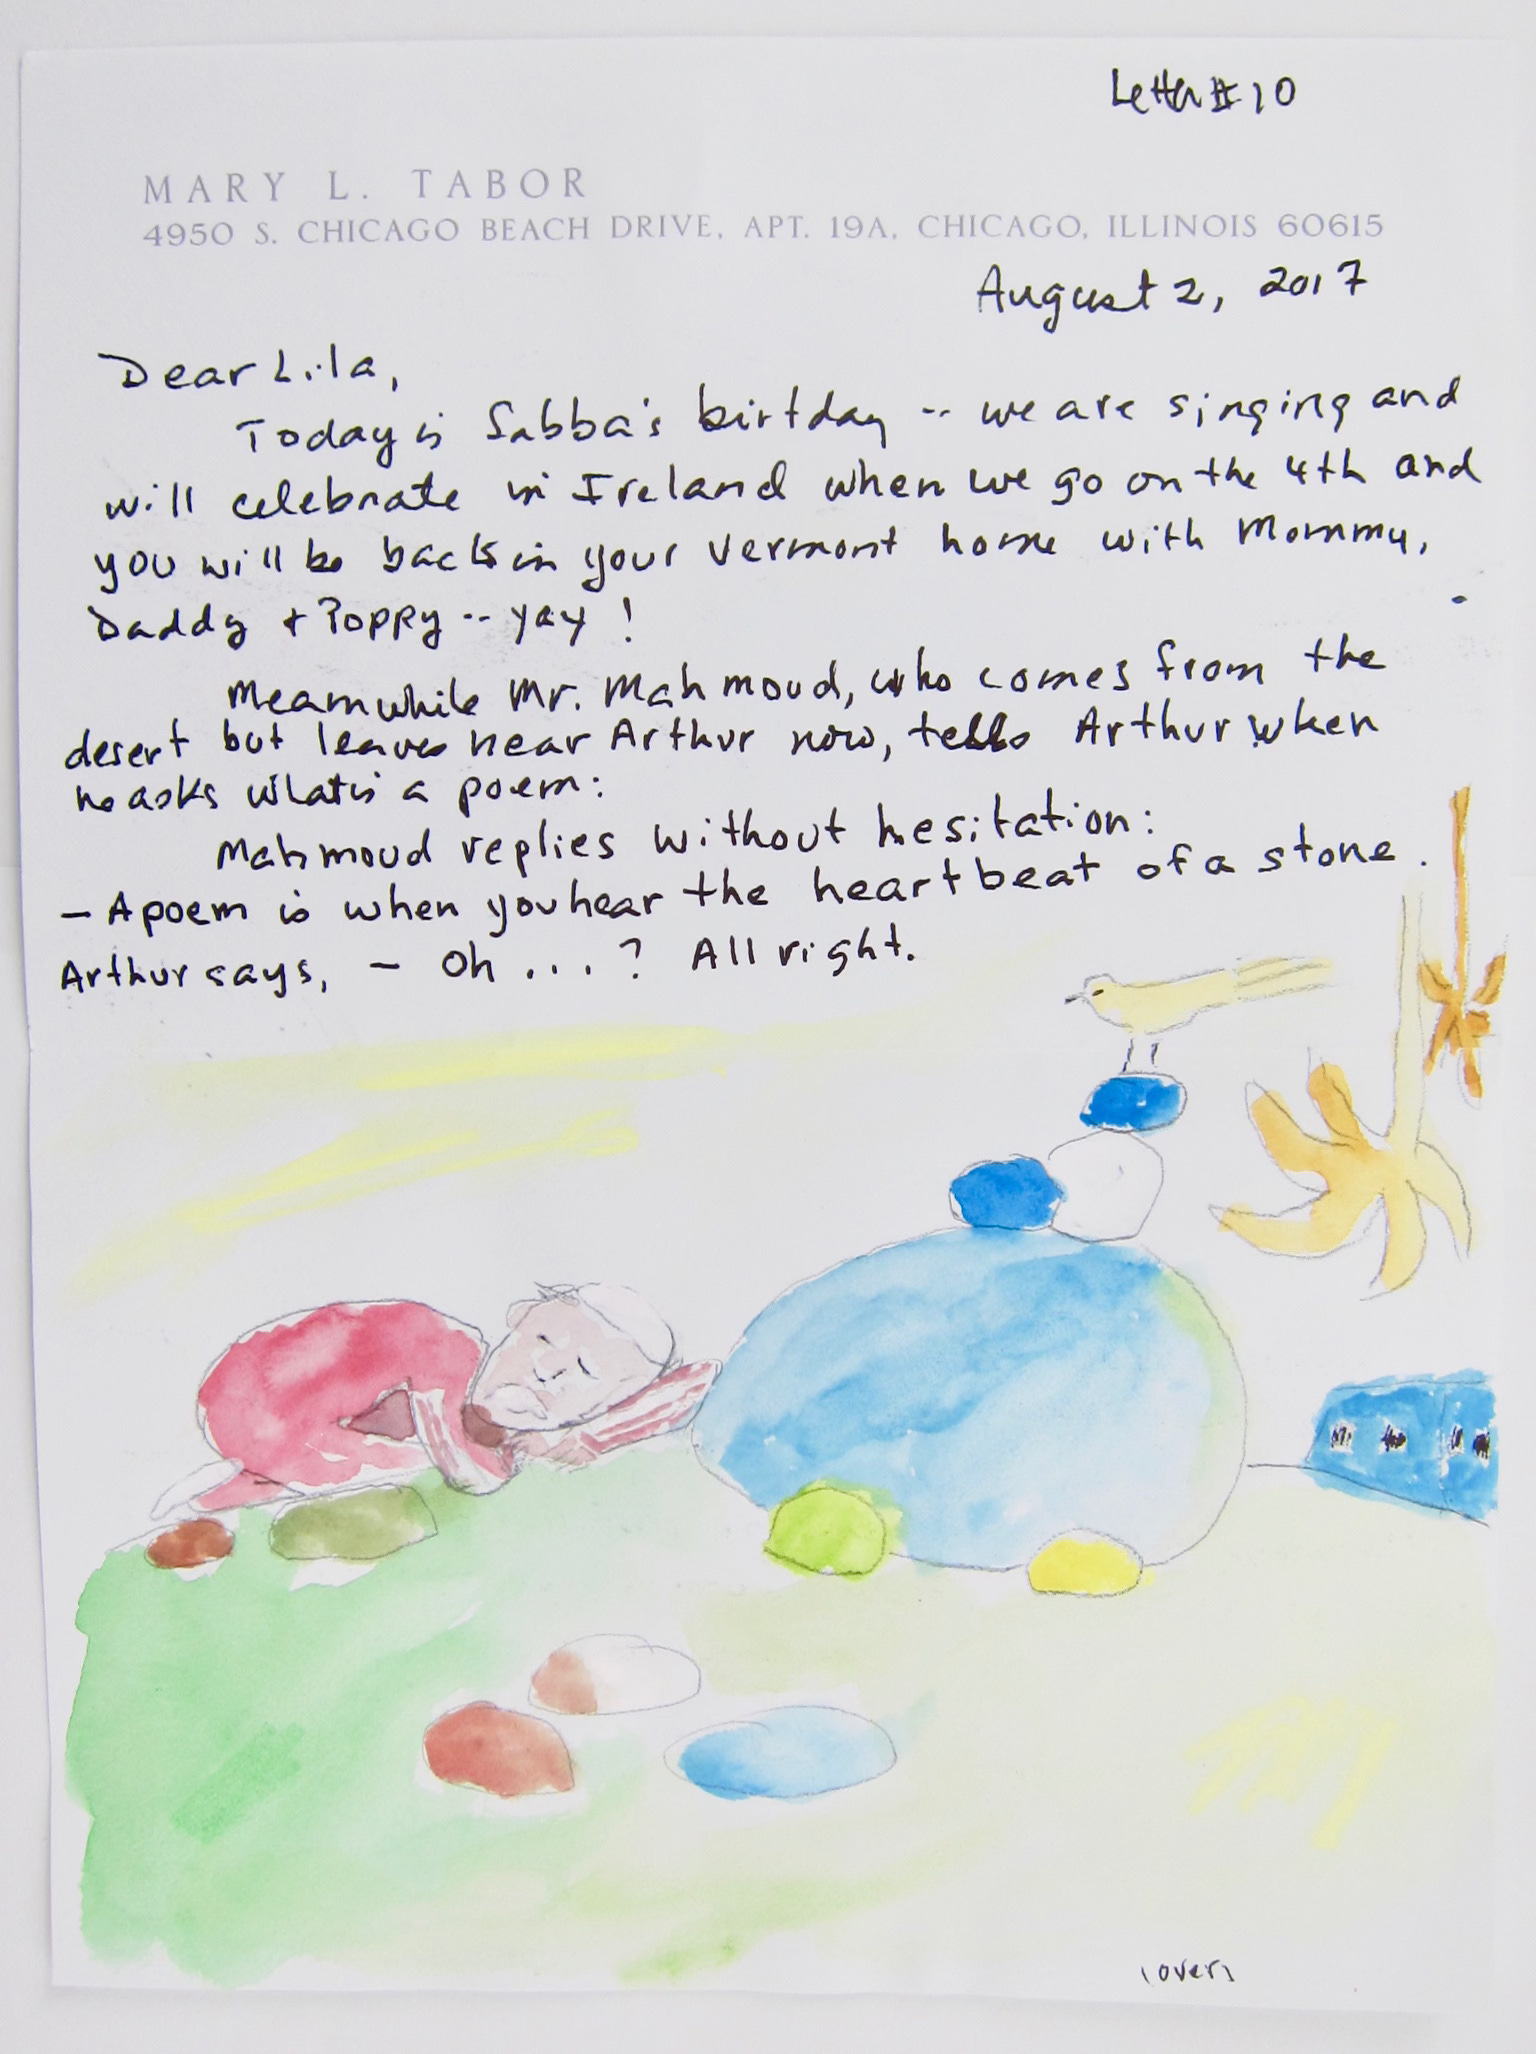 Letter # 10
MARY L. TABOR
4950 S. CHICAGO BEACH DRIVE, APT. 19A, CHICAGO, ILLINOIS 60615
August 2, 2017
Dear Lila,
Today is Sabba's birtday -- we are singing and
will celebrate in Ireland when we go on the 4th and
you will be back in your Vermont home with Mommy,
Daddy + Poppy -- yay!
Meanwhile Mr. Mahmoud, who comes from the
desert but leaves near Arthur now, tells Arthur when
he asks what is a poem:
Mahmoud replies without hesitation:
– A poem is when you hear the heartbeat of a stone.
Arthur says, – Oh ...? All right.
(over)